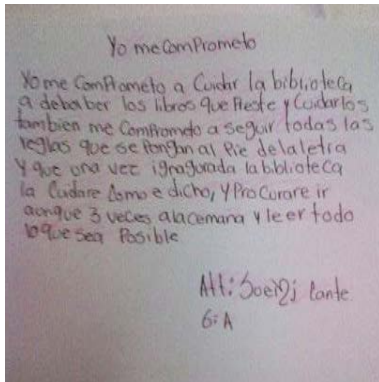 Yo me ComPrometo
Yo me ComPrometo a Cuidar la biblioteca
a debolber los libros que Preste y Cuidarlos
tambien me ComPrometo a seguir todas las
reglas que se Pongan al Pie de la letra
Y que una vez ignagurada la biblioteca
la Cuidare Como e dicho, y ProCurare ir
aunque 3 veces a la cemana y leer todo
lo que sea Posible
Att:
6: A